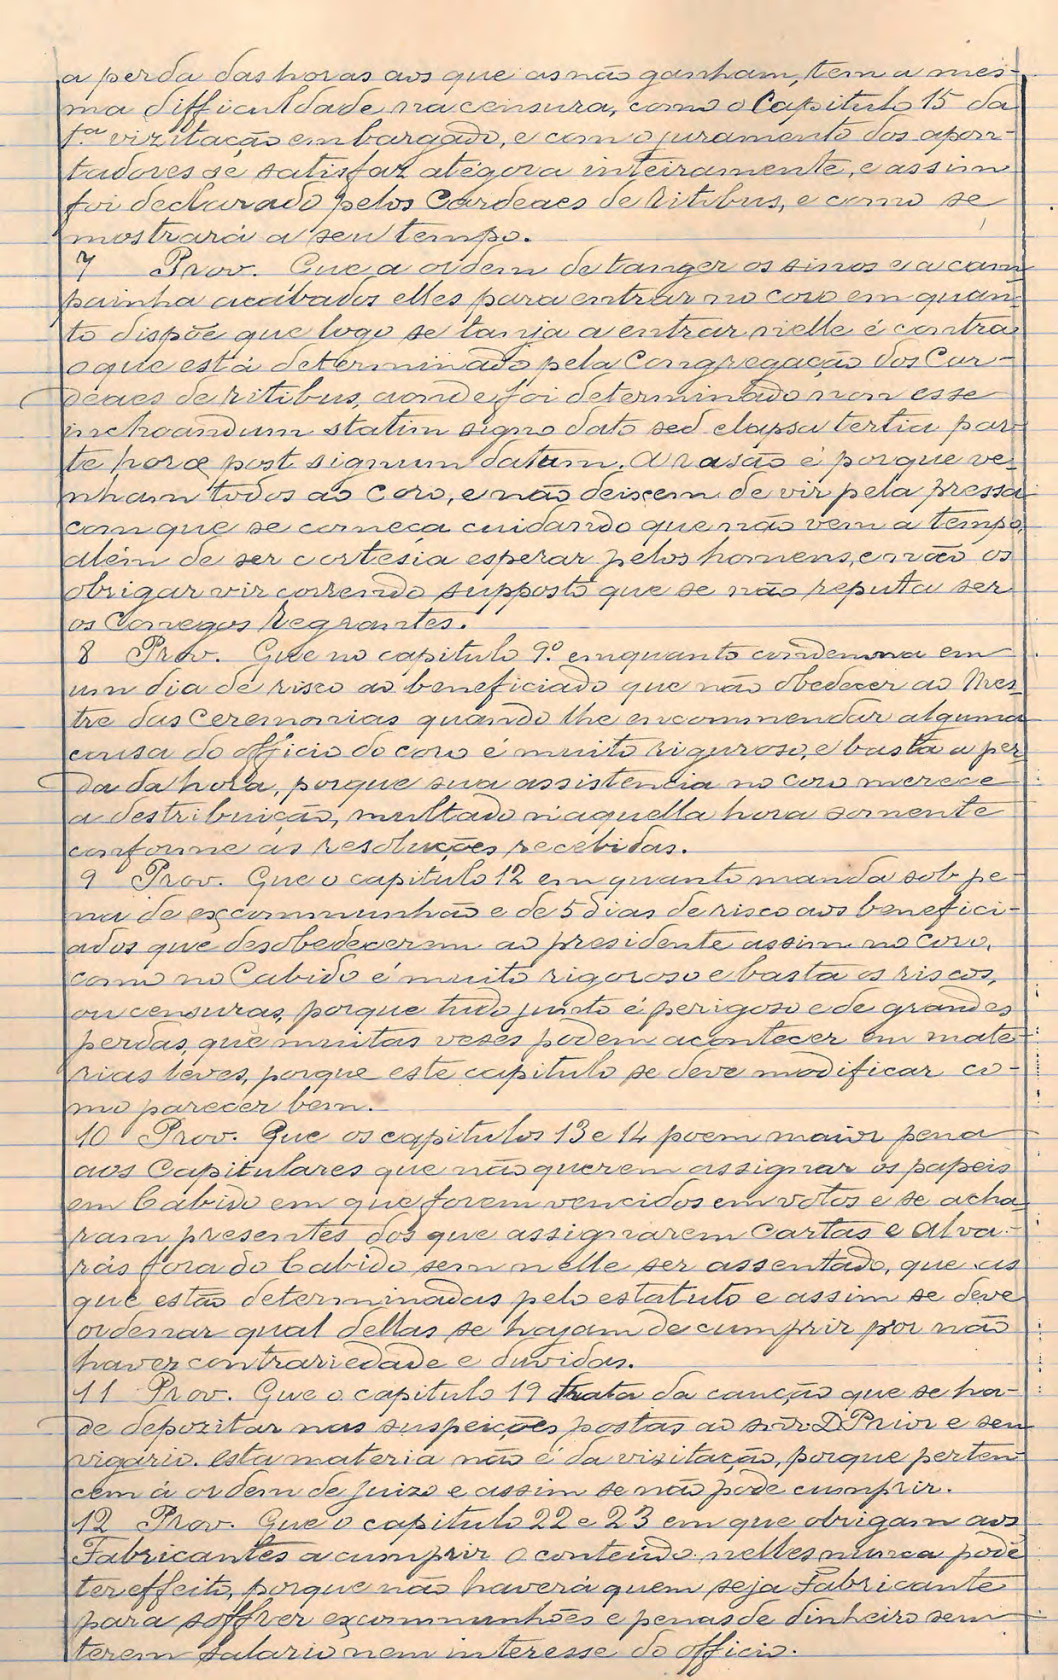 a perda das horas aos que as não ganham, tem a mes-
ma difficuldade na censura, como o Capitulo 15 da
1.ª vizitação embargado, e com o juramento dos apon-
tadores se satisfaz atégora inteiramente, e assim
foi declarado pelos Cardeaes de Ritibus, e como se
mostrará a seu tempo.
7 Prov. Que a ordem de tanger os sinos e a cam
painha acabados elles para entrar no coro em quan-
to dispõe que logo se tanja a entrar nelle é contra
o que está determinado pela Congregação dos Car-
deaes de ritibus, aonde foi determinado non esse
inchoandum statim signo dato sed elapsa tertia par
te horæ post signum datum. A rasão é porque ve-
nham todos ao coro, e não deixem de vir pela pressa
com que se começa cuidando que não vem a tempo,
além de ser cortesia esperar pelos homens, e não os
obrigar vir correndo supposto que se não reputa ser
os Conegos Regrantes.
8 Prov. Que no capitulo 9.º emquanto condemna em
um dia de risco ao beneficiado que não obedecer ao Mes-
tre das Ceremonias quando lhe encommendar alguma
cousa do officio do coro é muito riguroso, e basta a per
da da hora, porque sua assistencia no coro merece
a destribuição, multado n'aquella hora somente
conforme as resoluções recebidas.
9 Prov. Que o capitulo 12 em quanto manda sob pe-
na de excommunhão e de 5 dias de risco aos benefici-
ados que desobedecerem ao presidente assim no coro,
como no Cabido é muito rigoroso e basta os riscos,
ou censuras, porque tudo junto é perigoso e de grandes
perdas, que muitas veses podem acontecer em maté-
rias léves, porque este capitulo se deve modificar co-
mo parecer bem.
10 Prov. Que os capitulos 13 e 14 poem maior pena
aos Capitulares que não querem assignar os papeis
em Cabido em que forem vencidos em votos e se acha-
ram presentes dos que assignarem cartas e alva-
rás fora do Cabido sem nelle ser assentado, que as
que estão determinadas pelo estatuto e assim se deve
ordenar qual dellas se hajam de cumprir por não
haver contrariedade e duvidas.
11 Prov. Que o capitulo 19 trata da canção que se ha-
de depozitar nas suspeições postas ao snr. D Prior e seu
vigario. esta materia não é da visitação, porque perten-
cem á ordem de juizo e assim se não pode cumprir.
12 Prov. Que o capitulo 22 e 23 em que obrigam aos
Fabricantes a cumprir o conteúdo nelles nunca pode
ter effeito, porque não haverá quem seja Fabricante
para soffrer excommunhões e penas de dinheiro sem
terem salario nem interesse do officio.